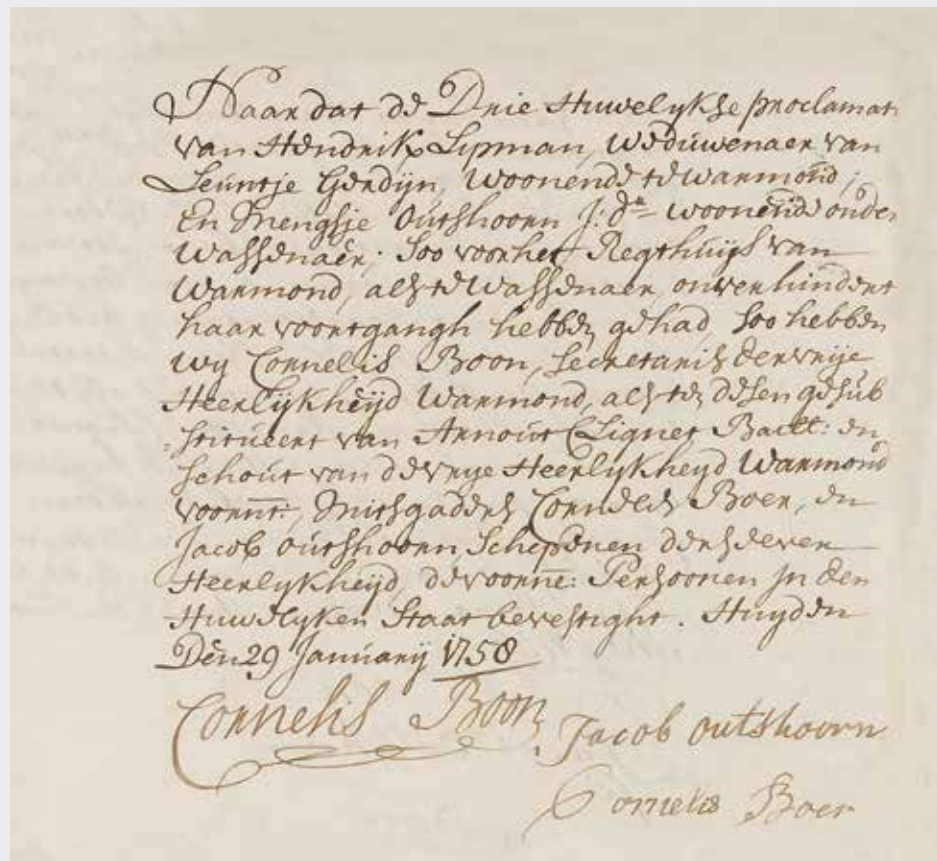 Naar dat de Drie Huwelykse proclamat
van Hendrik Lipman, Weduwenaer van
Leuntje Gerdijn, Woonende te Warmond;
En Mengsje Outshoorn J: d.ᵃ Woonende onder
Wassenaer; Soo voor het Regthuijs van
Warmond, als te Wassenaer, onverhindert
haar voortgangh hebben gehad, Soo hebben
Wy Cornelis Boon, Secretaris der vrije
Heerlijkheijd Warmond, als ten desen gesub
=stitueert van Arnout Ligner Baill: en
Schout van de vrye Heerlykheyd Warmond
voornt:, Mitsgaders Cornelis Boer, en
Jacob Outshoorn Schepenen derselver
Heerlykheyd, de voorne: Persoonen In den
Huwelyken Staat bevestight. Huyden
Den 29 Januarij 1758
Cornelis Boon
Jacob outshoorn
Cornelis Boer